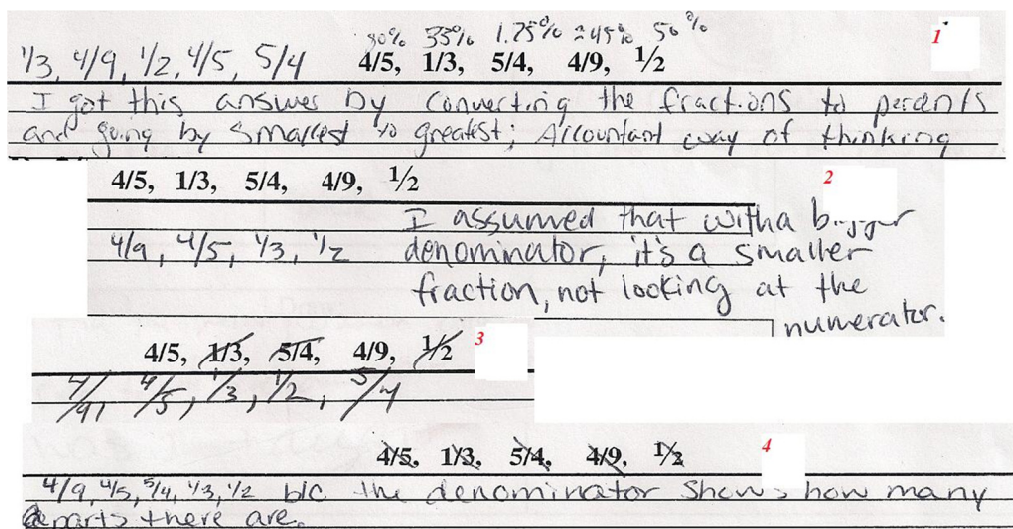 80% 33% 1.25% ≈45% 50% 1
1/3, 4/9, 1/2, 4/5, 5/4 4/5, 1/3, 5/4, 4/9, 1/2
I got this answer by converting the fractions to percents
and going by smallest to greatest; Accountant way of thinking
4/5, 1/3, 5/4, 4/9, 1/2 2
I assumed that with a bigger
4/9, 4/5, 1/3, 1/2 denominator, it's a smaller
fraction, not looking at the
numerator.
4/5, 1/3, 5/4, 4/9, 1/2 3
4/9, 4/5, 1/3, 1/2, 5/4
4/5, 1/3, 5/4, 4/9, 1/2 4
4/9, 4/5, 5/4, 1/3, 1/2 b/c the denominator shows how many
parts there are.